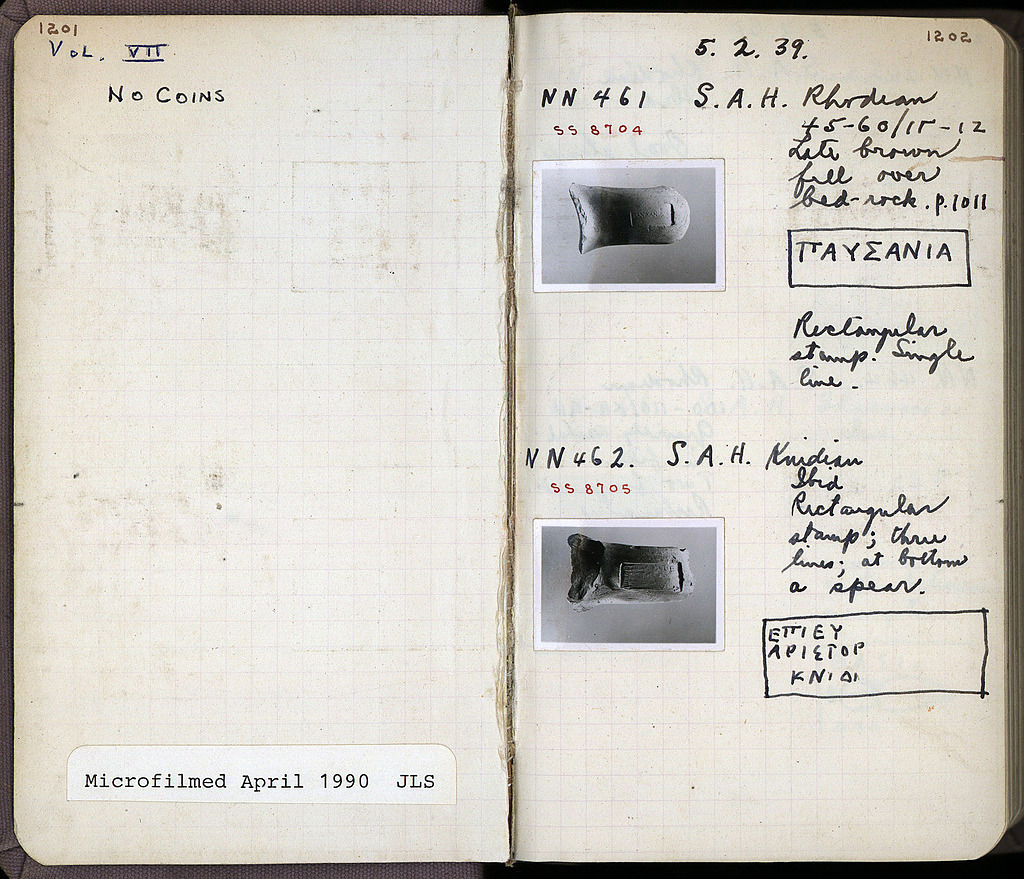 1201
VOL. VII
NO COINS
Microfilmed April 1990 JLS
1202
5. 2. 39.
NN 461 S.A.H. Rhodian
SS 8704
45-60/ΙΓ-12
Late brown
fill over
bed-rock. p.1011
ΠΑΥΣΑΝΙΑ
Rectangular
stamp. Single
line.
NN 462. S.A.H. Knidian
SS 8705
Ibid
Rectangular
stamp; three
lines; at bottom
a spear.
ΕΠΙΕΥ
ΑΡΙΣΤΟΡ
ΚΝΙΔΙ